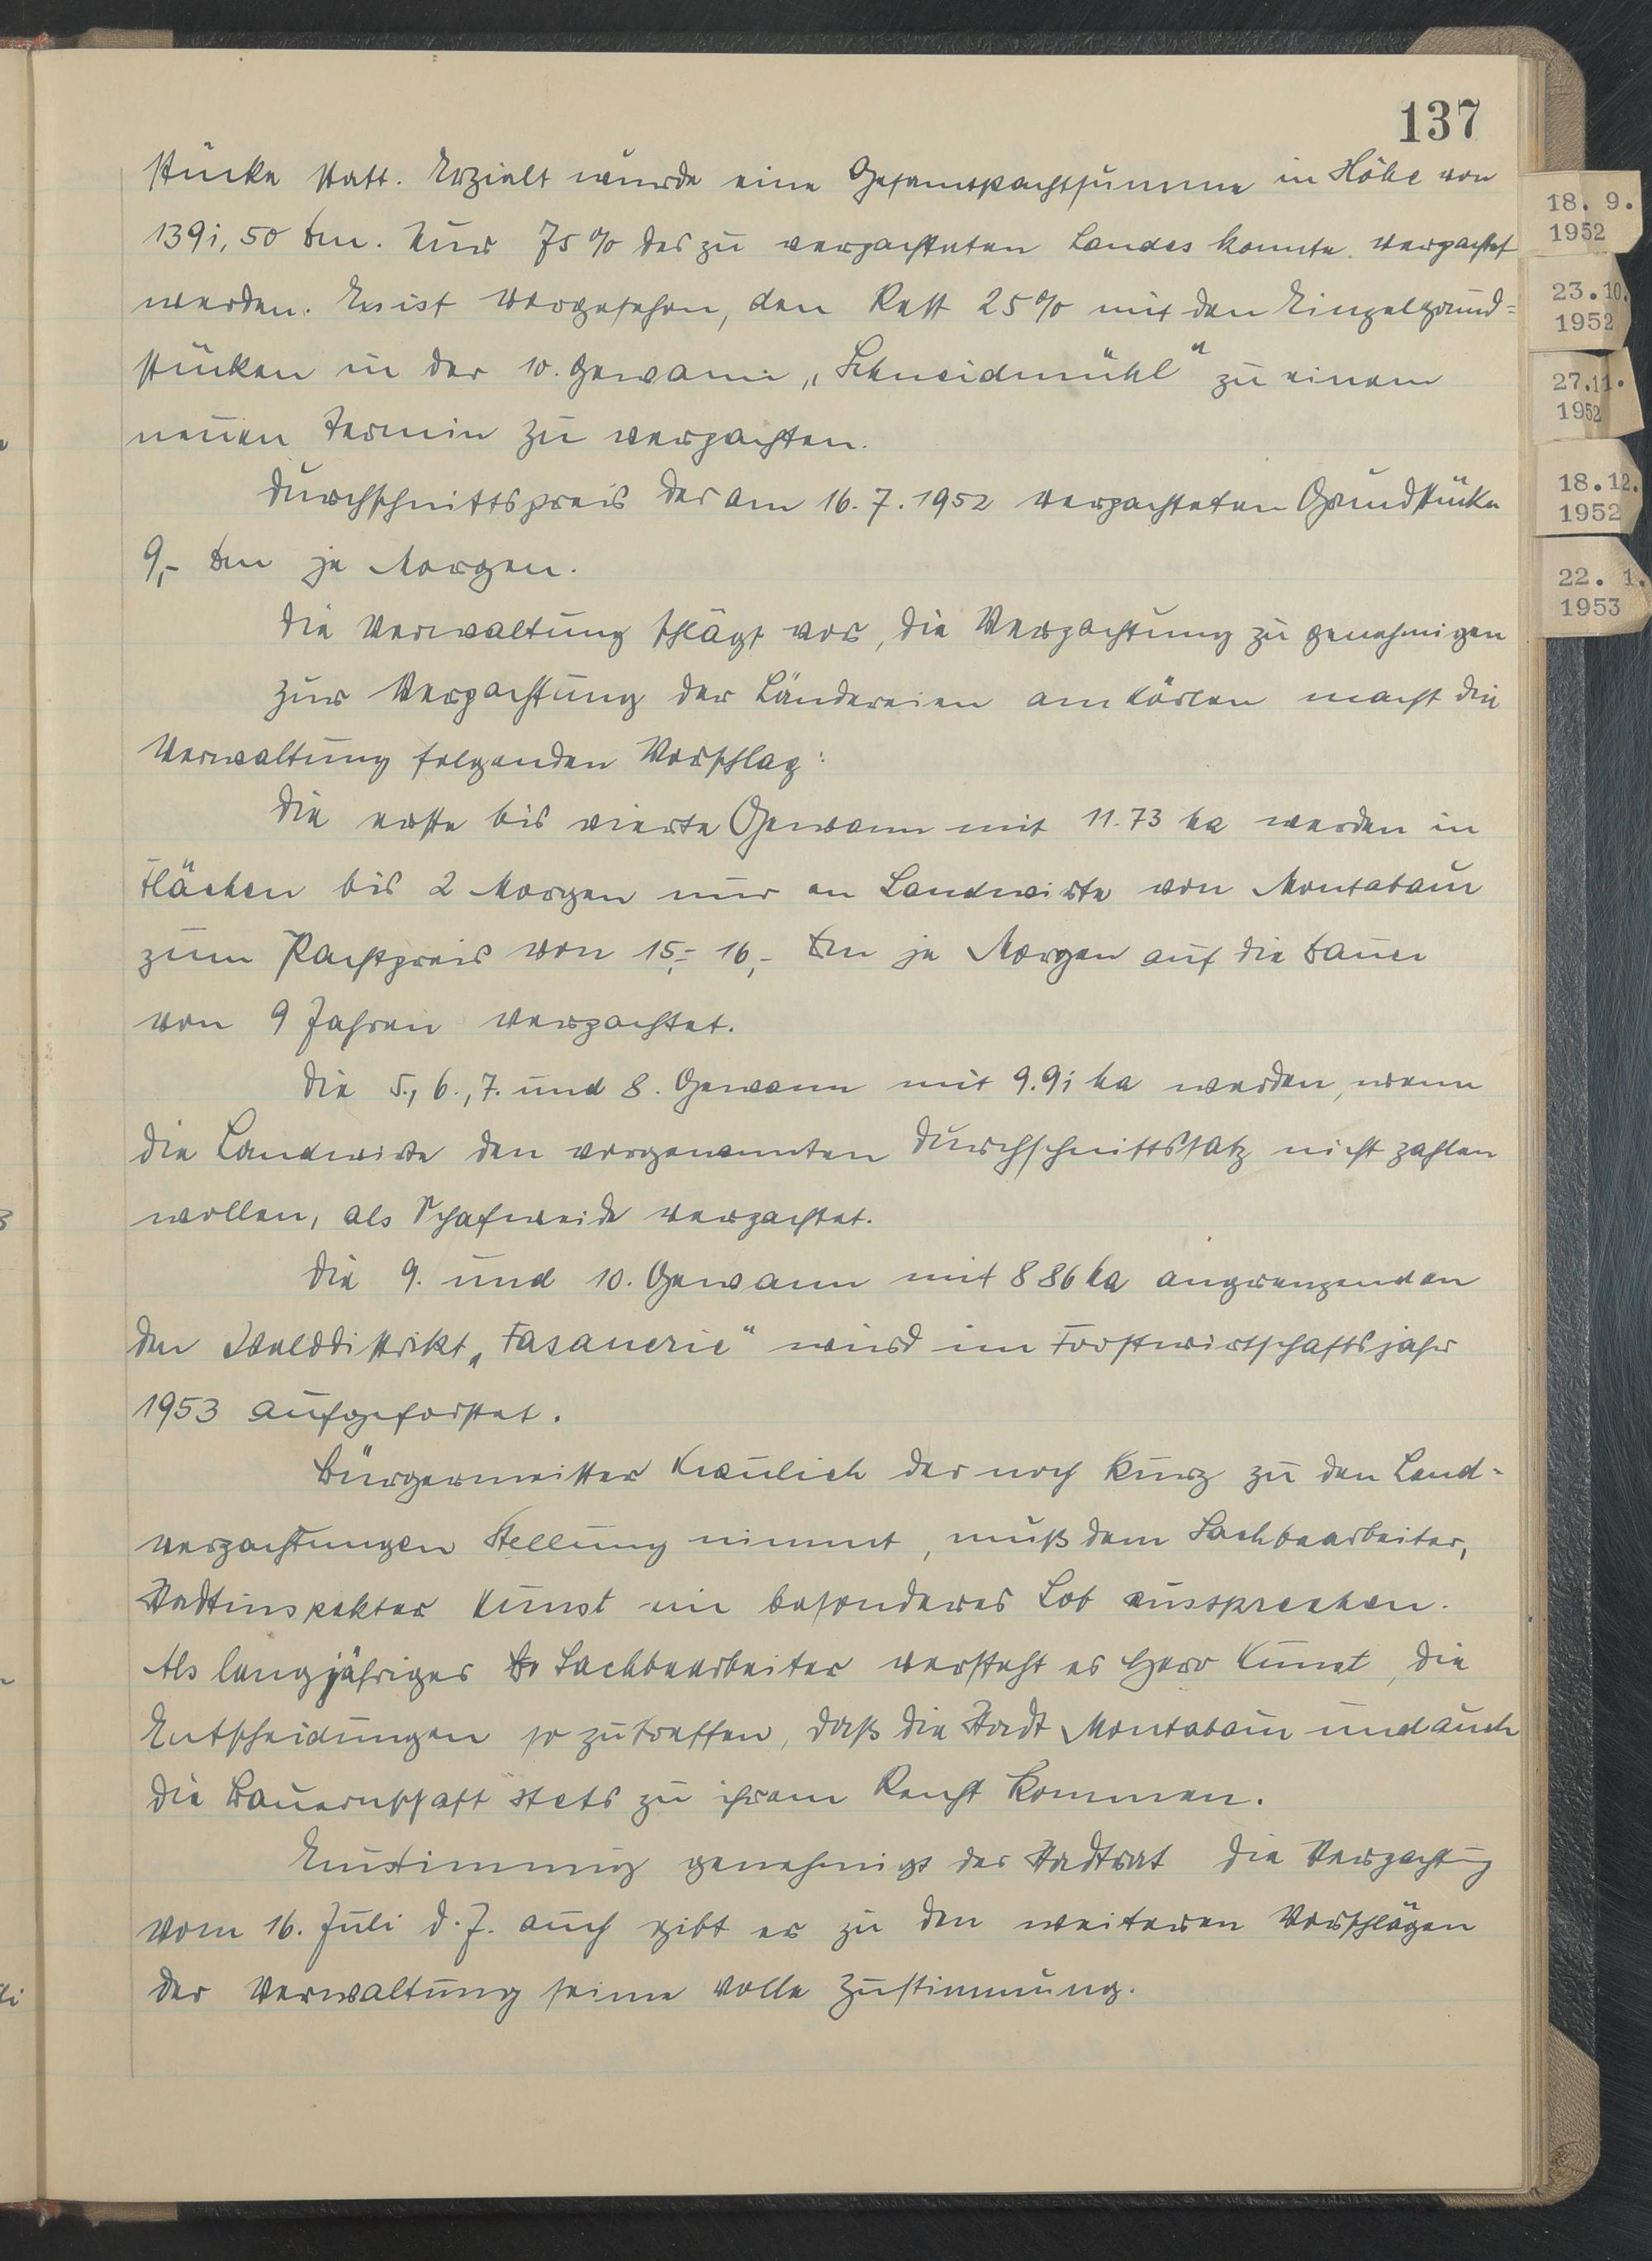 137
stücke statt. Erzielt wurde eine Gesamtpachtsumme in Höhe von
1391,50 Dm. Nur 75 % des zu verpachteten Landes konnte verpachtet
werden. Es ist vorgesehen, den Rest 25 % mit den Einzelgrund=
stücken in der 10. Gewann „Schneidmühl" zu einem
neuen Termin zu verpachten.
Durchschnittspreis der am 16.7.1952 verpachteten Grundstücke
9,- Dm je Morgen.
Die Verwaltung schlägt vor, die Verpachtung zu genehmigen
Zur Verpachtung der Ländereien am macht die
Verwaltung folgenden Vorschlag:
Die erste bis vierte Gewann mit 11.73 ha werden in
Flächen bis 2 Morgen nur an Landwirte von Montabaur
zum Pachtpreis von 15,- 16,- Dm je Morgen auf die Dauer
von 9 Jahren verpachtet.
Die 5., 6., 7. und 8. Gewann mit 9.91 ha werden, wenn
die Landwirte den vorgenannten Durchschnittssatz nicht zahlen
wollen, als Schafweide verpachtet.
Die 9. und 10. Gewann mit 8 86 ha angrenzend an
den Walddistrikt „Fasanerie" wird im Forstwirtschaftsjahr
1953 aufgeforstet.
Bürgermeister Kraulich der noch kurz zu den Land-
verpachtungen Stellung nimmt, muß dem Sachbearbeiter,
Stadtinspektor Kunst ein besonderes Lob aussprechen.
Als langjähriger Sachbearbeiter versteht es Herr Kunst, die
Entscheidungen so zu treffen, daß die Stadt Montabaur und auch
die Bauernschaft stets zu ihrem Recht kommen.
Einstimmig genehmigt der Stadtrat die Verpachtung
vom 16. Juli d. J. auch gibt er zu den weiteren Vorschlägen
der Verwaltung seine volle Zustimmung.
18. 9.
1952
23.10.
1952
27.11.
1952
18.12.
1952
22. 1.
1953